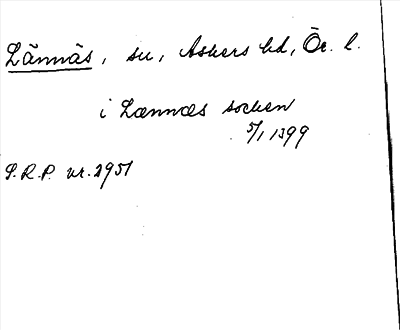 Lännäs, sn, Askers hd, Ör. l.
i Lænnæs socken
5/1 1399
S.R.P. nr. 2951